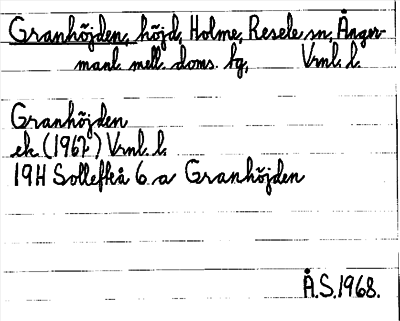 Granhöjden, höjd, Holme, Resele sn, Ånger-
manl. mell. doms. hg, Vrnl. l.
Granhöjden
ek (1967) Vrnl. l.
19H Sollefteå 6 a Granhöjden
Å.S.1968.